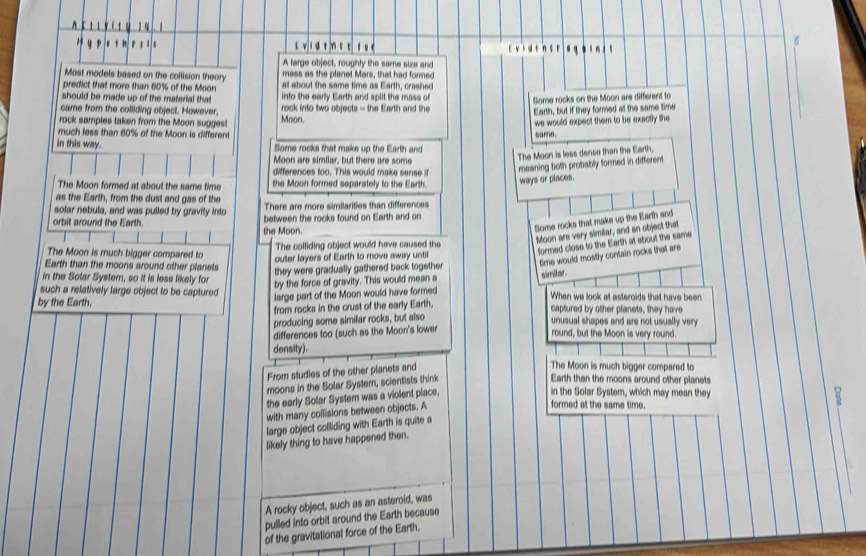 Activity 14.1
Hypothesis
Evidence for
Evidence against
Most models based on the collision theory
predict that more than 60% of the Moon
should be made up of the material that
came from the colliding object. However,
rock samples taken from the Moon suggest
much less than 60% of the Moon is different
in this way.
The Moon formed at about the same time
as the Earth, from the dust and gas of the
solar nebula, and was pulled by gravity into
orbit around the Earth.
The Moon is much bigger compared to
Earth than the moons around other planets
in the Solar System, so it is less likely for
such a relatively large object to be captured
by the Earth.
A large object, roughly the same size and
mass as the planet Mars, that had formed
at about the same time as Earth, crashed
into the early Earth and split the mass of
rock into two objects – the Earth and the
Moon.
Some rocks that make up the Earth and
Moon are similar, but there are some
differences too. This would make sense if
the Moon formed separately to the Earth.
There are more similarities than differences
between the rocks found on Earth and on
the Moon.
The colliding object would have caused the
outer layers of Earth to move away until
they were gradually gathered back together
by the force of gravity. This would mean a
large part of the Moon would have formed
from rocks in the crust of the early Earth,
producing some similar rocks, but also
differences too (such as the Moon's lower
density).
From studies of the other planets and
moons in the Solar System, scientists think
the early Solar System was a violent place,
with many collisions between objects. A
large object colliding with Earth is quite a
likely thing to have happened then.
A rocky object, such as an asteroid, was
pulled into orbit around the Earth because
of the gravitational force of the Earth.
Some rocks on the Moon are different to
Earth, but if they formed at the same time
we would expect them to be exactly the
same.
The Moon is less dense than the Earth,
meaning both probably formed in different
ways or places.
Some rocks that make up the Earth and
Moon are very similar, and an object that
formed close to the Earth at about the same
time would mostly contain rocks that are
similar.
When we look at asteroids that have been
captured by other planets, they have
unusual shapes and are not usually very
round, but the Moon is very round.
The Moon is much bigger compared to
Earth than the moons around other planets
in the Solar System, which may mean they
formed at the same time.
Date